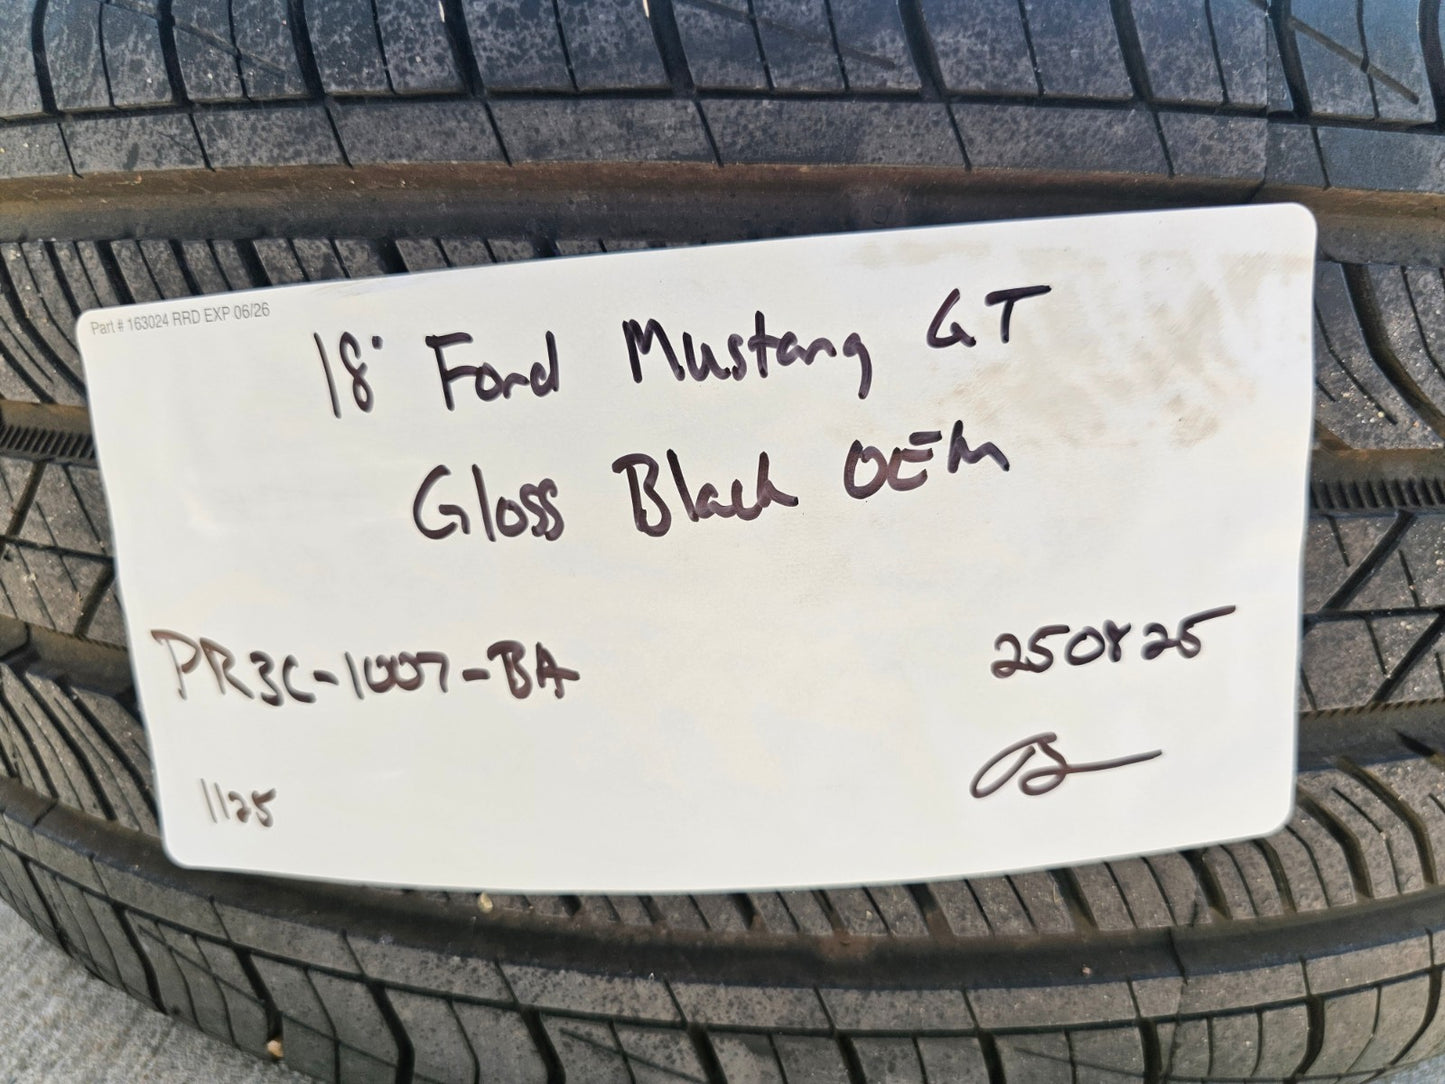 Part # 163024 RRD EXP 06/26
18" Ford Mustang GT
Gloss Black OEM
PR3C-1007-BA
250825
1125